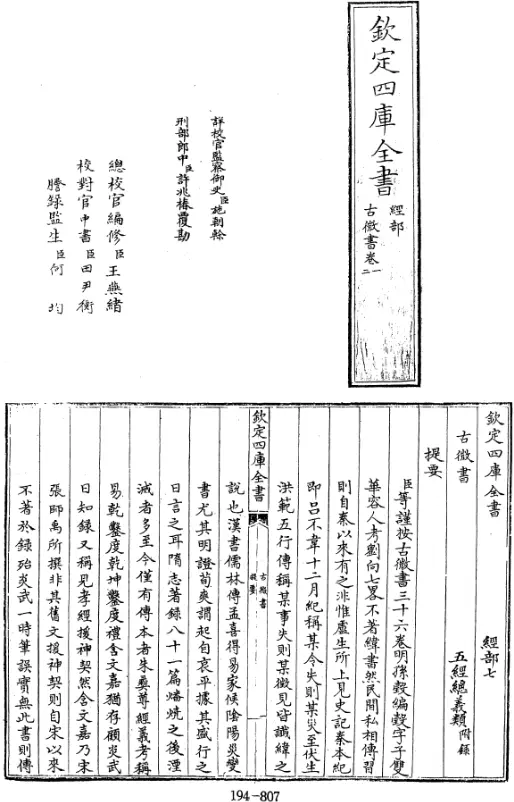 欽定四庫全書
經部
古微書卷一二
詳校官監察御史臣施朝榦
刑部郎中臣許兆椿覆勘
總校官編修臣王燕緒
校對官中書臣田尹衡
謄録監生臣何均
欽定四庫全書 經部七
古微書 五經總義類附錄
提要
臣等謹按古微書三十六卷明孫瑴編瑴字子雙
華容人考劉向七畧不著緯書然民間私相傳習
則自秦以來有之非惟盧生所上見史記秦本紀
即吕不韋十二月紀稱某令失則某災至伏生
洪範五行傳稱某事失則某徵見皆讖緯之
欽定四庫全書
古微書
提要
一
說也漢書儒林傳孟喜得易家候陰陽災變
書尤其明證荀爽謂起自哀平據其盛行之
日言之耳隋志著録八十一篇燔燒之後湮
滅者多至今僅有傳本者朱彝尊經義考稱
易乾鑿度乾坤鑿度禮含文嘉猶存顧炎武
日知録又稱見孝經援神契然含文嘉乃宋
張師禹所撰非其舊文援神契則自宋以來
不著於録殆炎武一時筆誤實無此書則傳
194-807